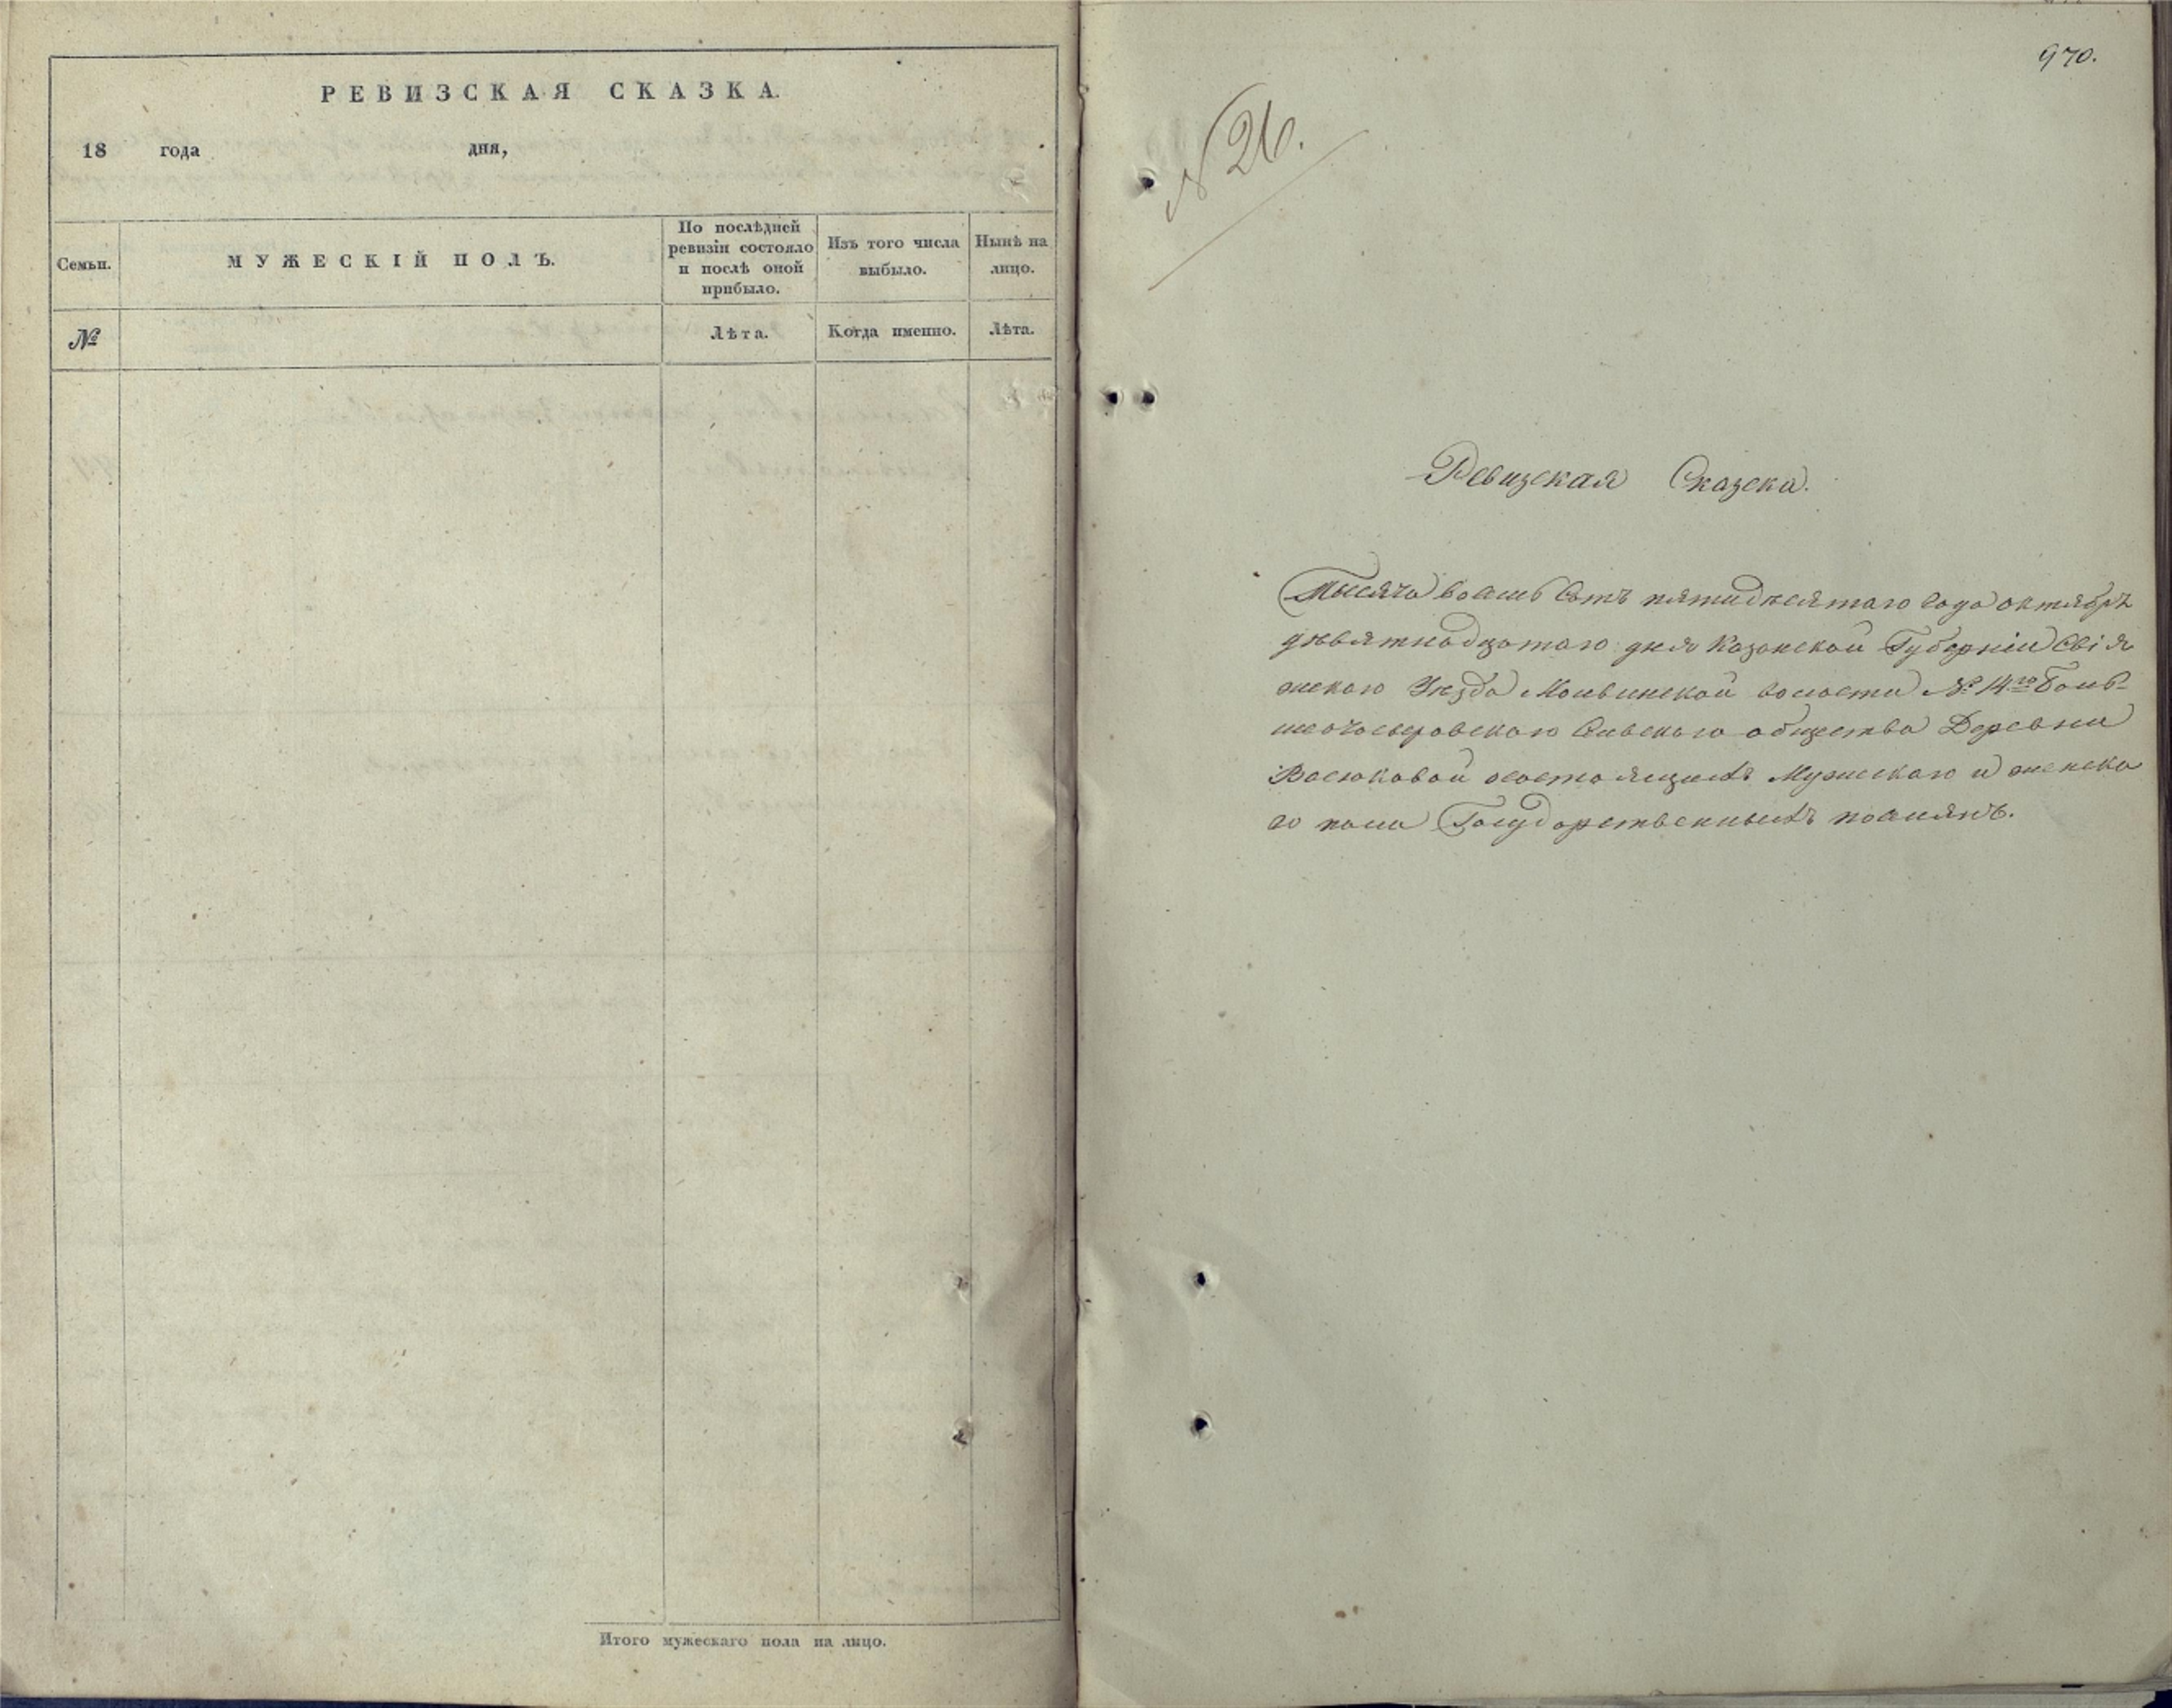 РЕВИЗСКАЯ СКАЗКА.
18 года дня,
Семьи.
МУЖЕСКІЙ ПОЛЪ.
По послѣдней
ревизіи состояло
и послѣ оной
прибыло.
Изъ того числа
выбыло.
Нынѣ на
лицо.
№
Лѣта.
Когда именно.
Лѣта.
Итого мужескаго пола на лицо.
970.
№ 26.
Ревизская Сказска.
Тысяча восемь Сотъ пятидесятаго года октября
девятнадцатаго дня Казанской Губерніи Свія
жскаго Уезда волости № 14го Боль-
Сельскаго общества Деревни
Васюковой состоящихъ Мужскаго и женска
го пола Государственныхъ поселянъ.